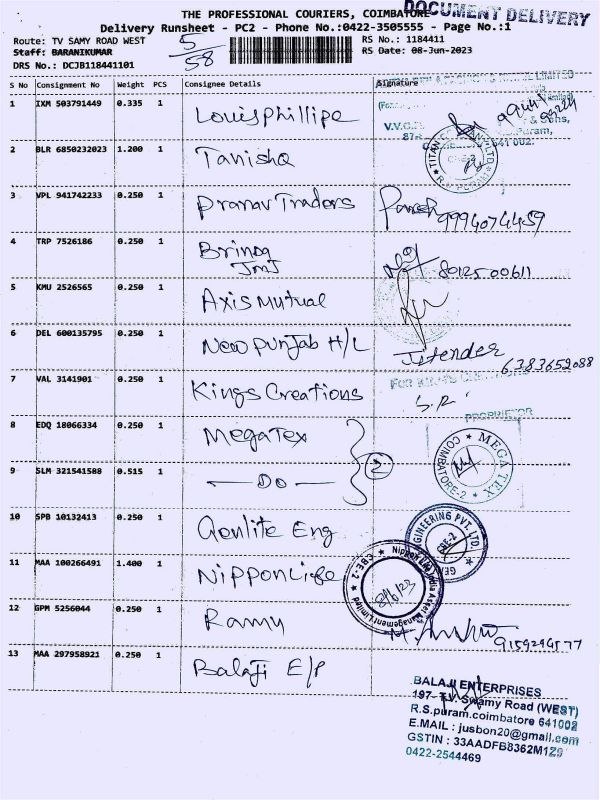 THE PROFESSIONAL COURIERS, COIMBATORE
DOCUMENT DELIVERY
Delivery Runsheet - PC2 - Phone No.:0422-3505555 - Page No.:1
Route: TV SAMY ROAD WEST
5/58
RS No.: 1184411
Staff: BARANIKUMAR
RS Date: 08-Jun-2023
DRS No.: DCJB118441101
S No Consignment No Weight PCS Consignee Details Signature
1 IXM 503791449 0.335 1 Louisphillipe
V.V.C. & Sons,
641 002.
2 BLR 6850232023 1.200 1 Tanishq
TITAN COMPANY LTD. CBE-2 R.S. PURAM
3 VPL 941742233 0.250 1 Pranav Traders 9994074459
4 TRP 7526186 0.250 1 8012500611
JMJ
5 KMU 2526565 0.250 1 Axis Mutual
6 DEL 600135795 0.250 1 New Punjab H/L Jitender 6383652088
7 VAL 3141901 0.250 1 Kings Creations
S.R.
PROPRIETOR
8 EDQ 18066334 0.250 1 MegaTex
MEGATEX COIMBATORE-2
9 SLM 321541588 0.515 1 — Do — 2
10 SPB 10132413 0.250 1 Genlite Eng
ENGINEERING PVT. LTD. CBE-2
11 MAA 100266491 1.400 1 Nippon Life
Nippon Life India Asset Management Limited CBE-2 8/6/23
12 GPM 5256044 0.250 1 Ramu
13 MAA 297958921 0.250 1 Balaji E/P
BALAJI ENTERPRISES
197- T.V. Swamy Road (WEST)
R.S.puram.coimbatore 641002
E.MAIL : jusbon20@gmail.com
GSTIN : 33AADFB8362M1Z9
0422-2544469